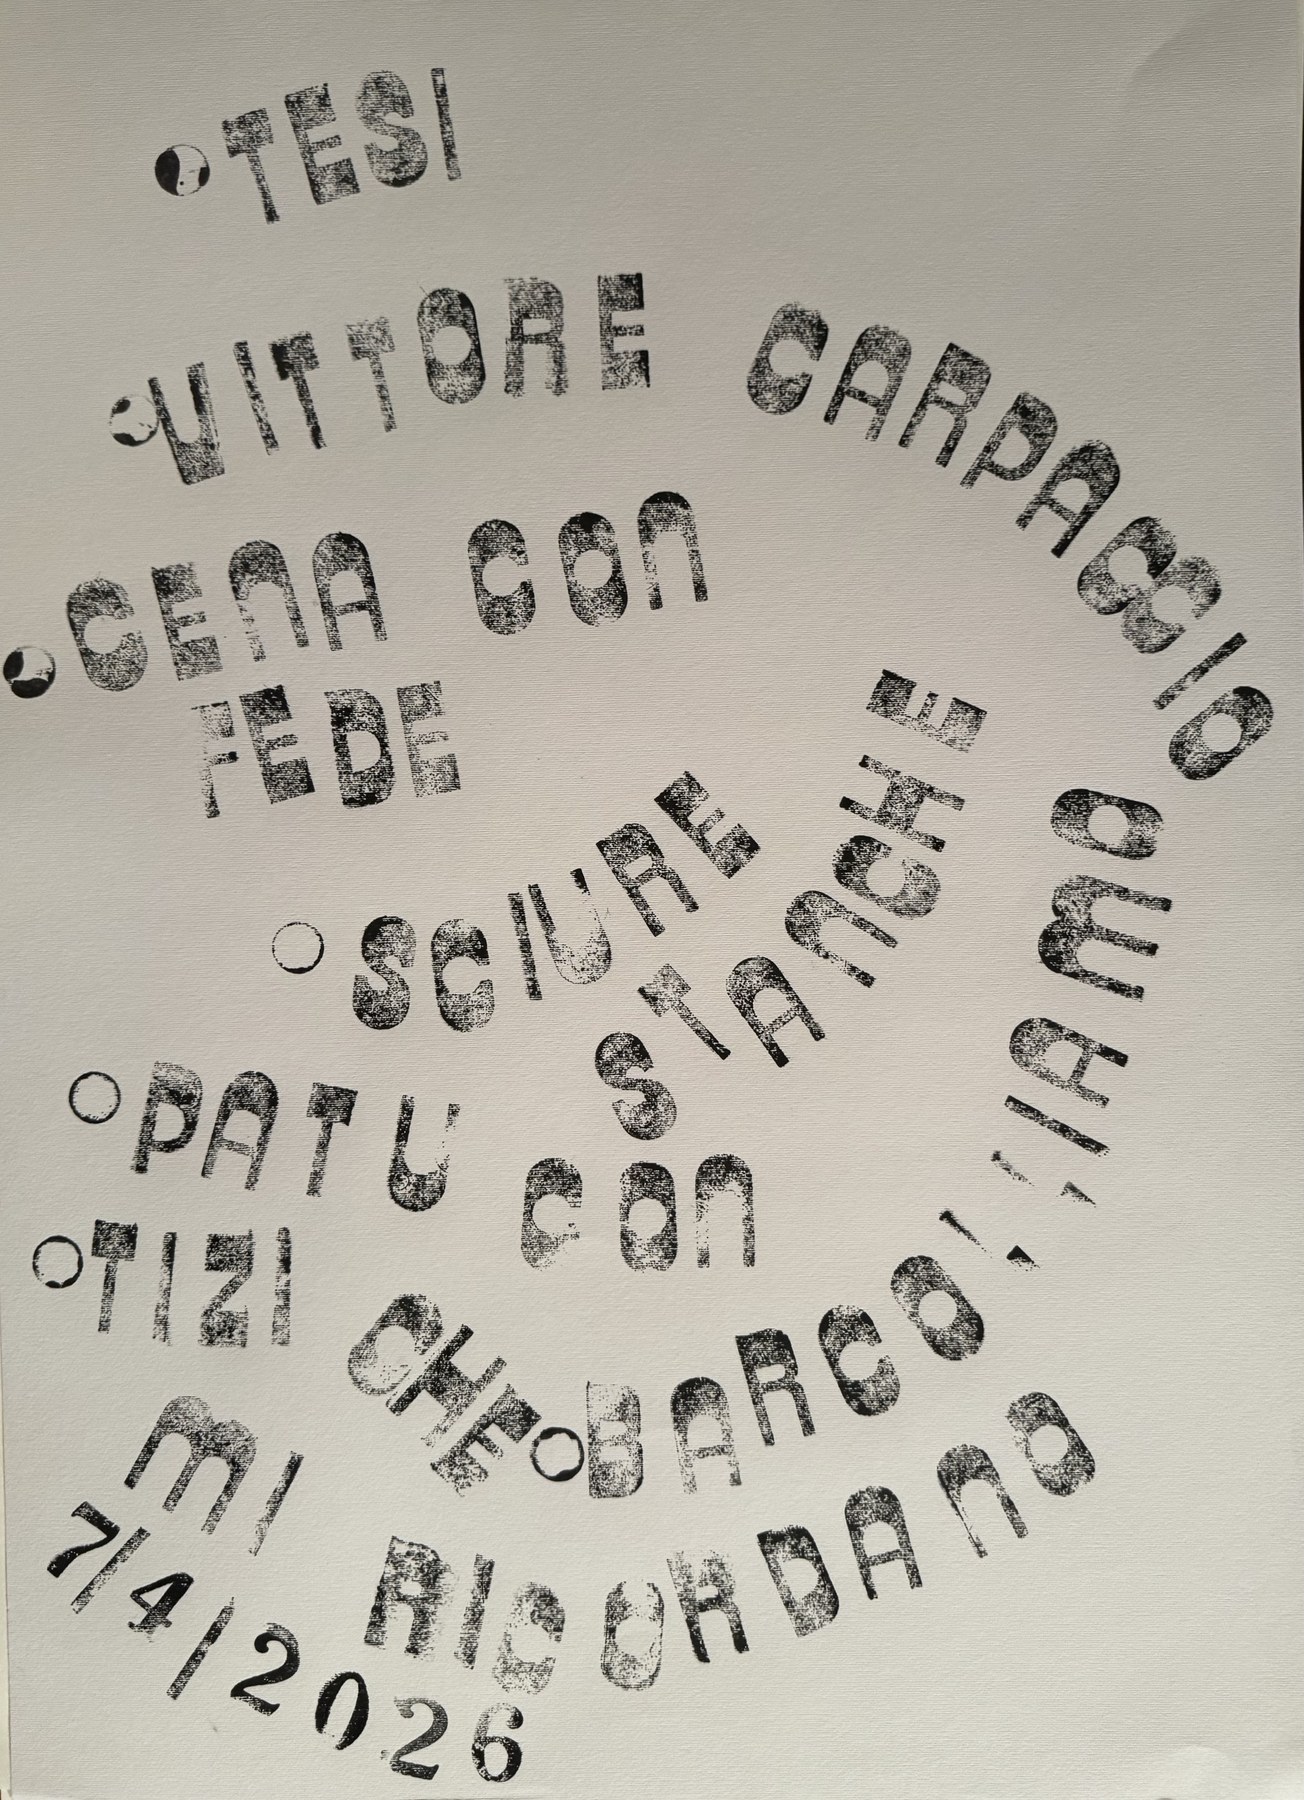 TESI
VITTORE CARPACCIO
CENA CON
FEDE
SCIURE STANCHE
PATU CON BARCOLLIAMO
TIZI CHE
MI RICORDANO
7/4/2026